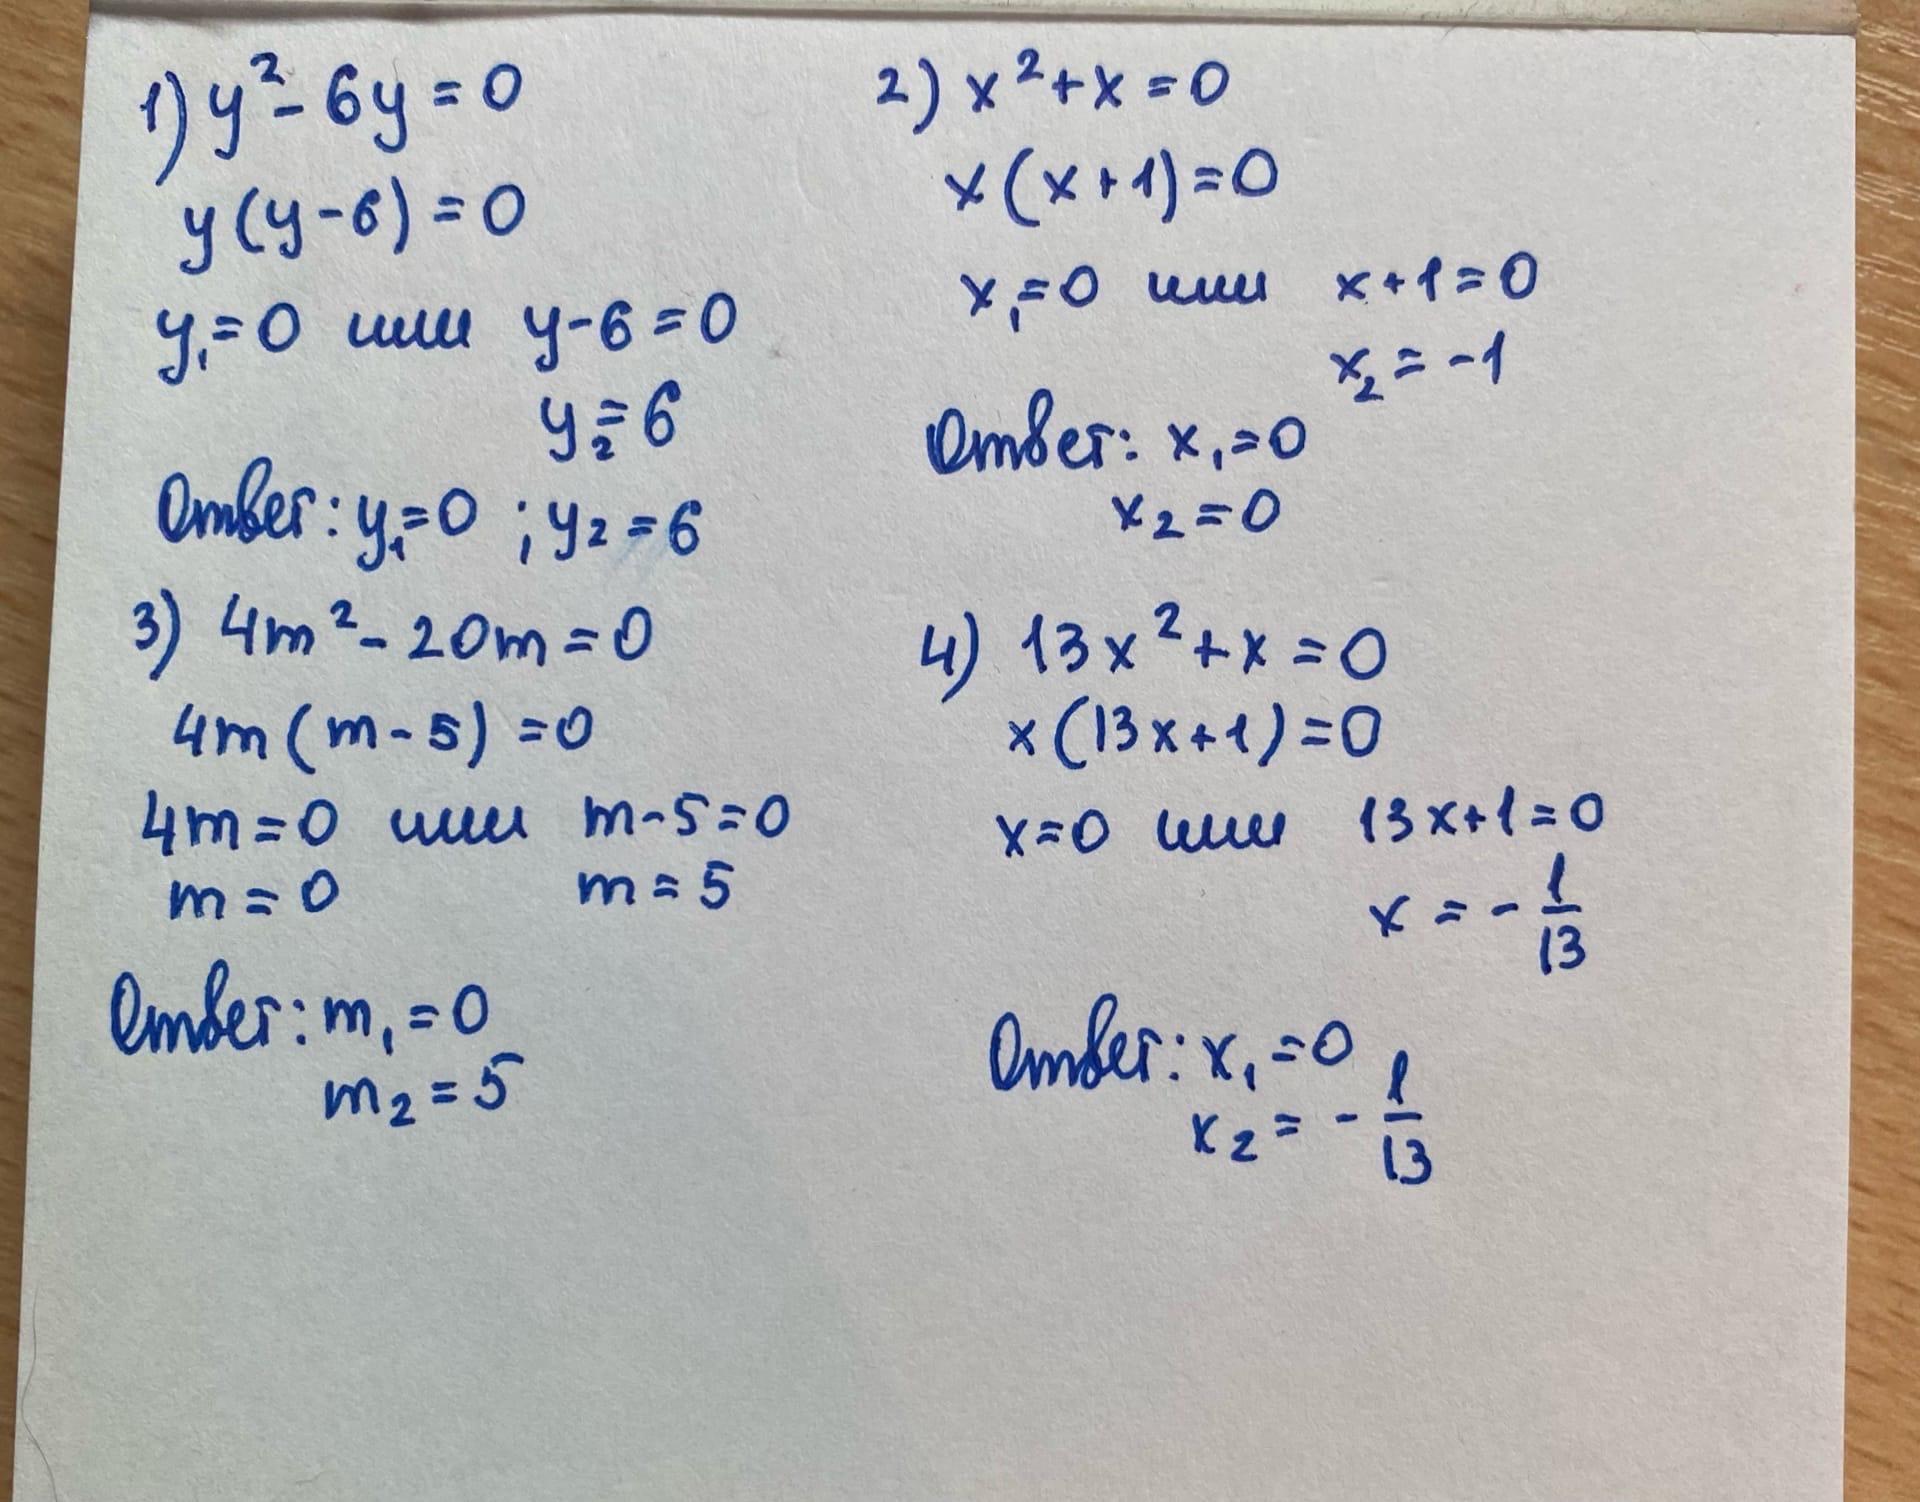 1) y² - 6y = 0
y(y-6) = 0
y₁=0 или y-6=0
y₂=6
Ответ: y₁=0 ; y₂=6
2) x²+x=0
x(x+1)=0
x₁=0 или x+1=0
x₂=-1
Ответ: x₁=0
x₂=0
3) 4m²-20m=0
4m(m-5)=0
4m=0 или m-5=0
m=0 m=5
Ответ: m₁=0
m₂=5
4) 13x²+x=0
x(13x+1)=0
x=0 или 13x+1=0
x = -1/13
Ответ: x₁=0
x₂=-1/13